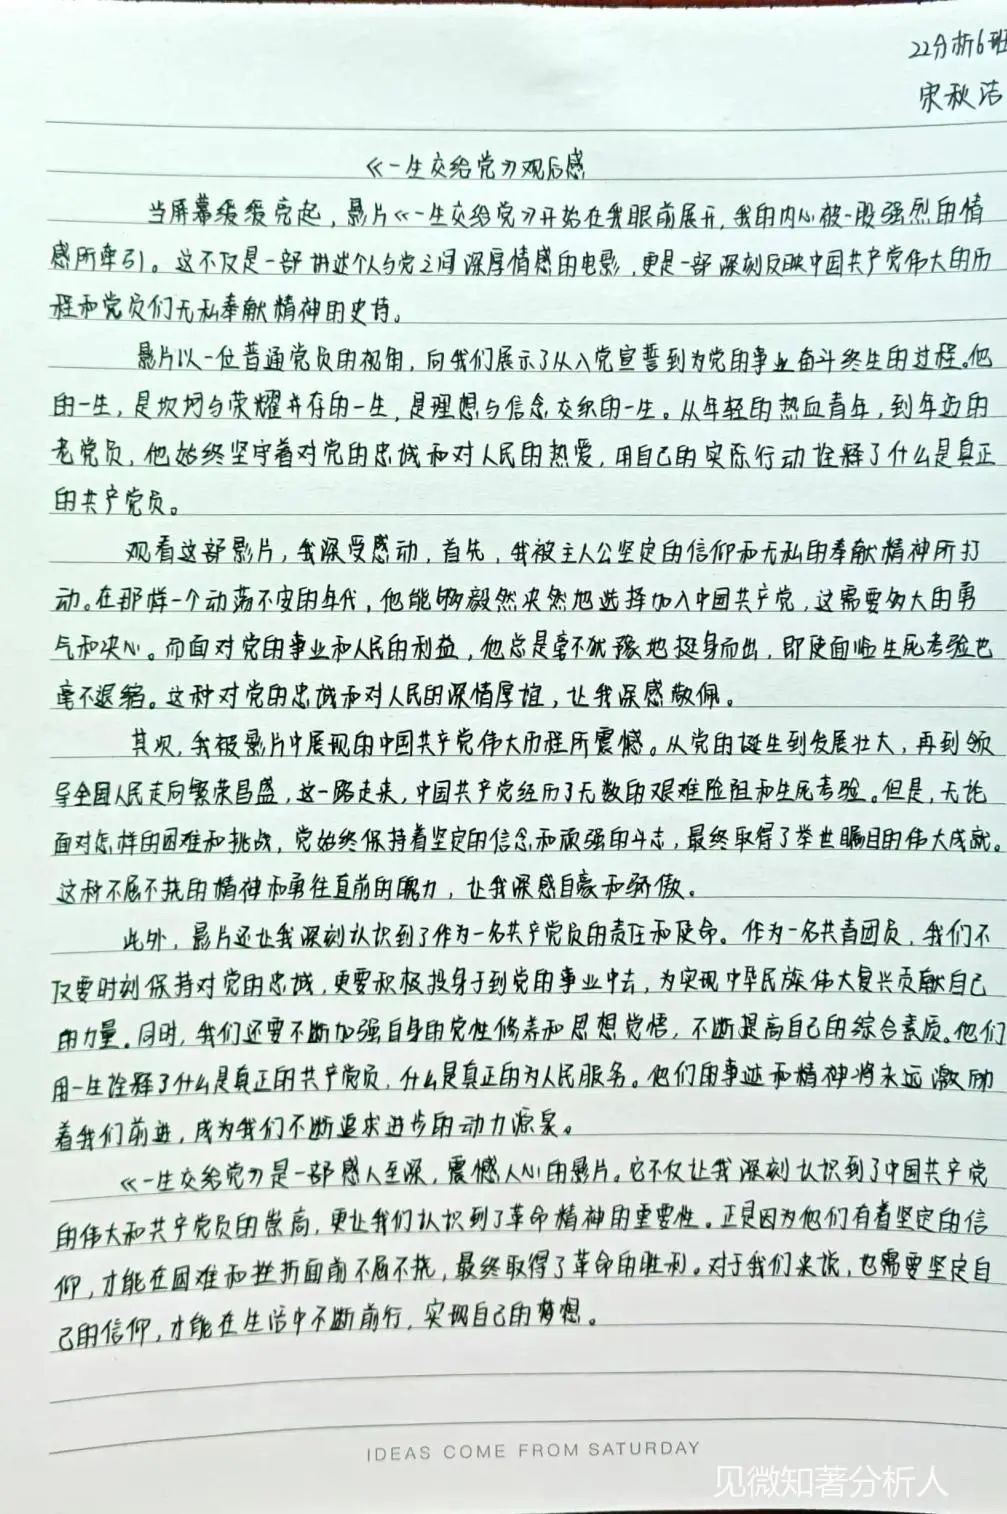 22分析6班
宋秋洁
《一生交给党》观后感
当屏幕缓缓亮起，影片《一生交给党》开始在我眼前展开，我的内心被一股强烈的情
感所牵引。这不仅是一部讲述个人与党之间深厚情感的电影，更是一部深刻反映中国共产党伟大的历
程和党员们无私奉献精神的史诗。
影片以一位普通党员的视角，向我们展示了从入党宣誓到为党的事业奋斗终生的过程。他
的一生，是坎坷与荣耀并存的一生，是理想与信念交织的一生。从年轻的热血青年，到年迈的
老党员，他始终坚守着对党的忠诚和对人民的热爱，用自己的实际行动诠释了什么是真正
的共产党员。
观看这部影片，我深受感动，首先，我被主人公坚定的信仰和无私的奉献精神所打
动。在那样一个动荡不安的年代，他能够毅然决然地选择加入中国共产党，这需要多大的勇
气和决心。而面对党的事业和人民的利益，他总是毫不犹豫地挺身而出，即使面临生死考验也
毫不退缩。这种对党的忠诚和对人民的深情厚谊，让我深感敬佩。
其次，我被影片中展现的中国共产党伟大历程所震憾。从党的诞生到发展壮大，再到领
导全国人民走向繁荣昌盛，这一路走来，中国共产党经历了无数的艰难险阻和生死考验。但是，无论
面对怎样的困难和挑战，党始终保持着坚定的信念和顽强的斗志，最终取得了举世瞩目的伟大成就。
这种不屈不挠的精神和勇往直前的魄力，让我深感自豪和骄傲。
此外，影片还让我深刻认识到了作为一名共产党员的责任和使命。作为一名共青团员，我们不
仅要时刻保持对党的忠诚，更要积极投身于到党的事业中去，为实现中华民族伟大复兴贡献自己
的力量。同时，我们还要不断加强自身的党性修养和思想觉悟，不断提高自己的综合素质。他们
用一生诠释了什么是真正的共产党员，什么是真正的为人民服务。他们的事迹和精神将永远激励
着我们前进，成为我们不断追求进步的动力源泉。
《一生交给党》是一部感人至深，震憾人心的影片。它不仅让我深刻认识到了中国共产党
的伟大和共产党员的崇高，更让我们认识到了革命精神的重要性。正是因为他们有着坚定的信
仰，才能在困难和挫折面前不屈不挠，最终取得了革命的胜利。对于我们来说，也需要坚定自
己的信仰，才能在生活中不断前行，实现自己的梦想。
IDEAS COME FROM SATURDAY
见微知著分析人